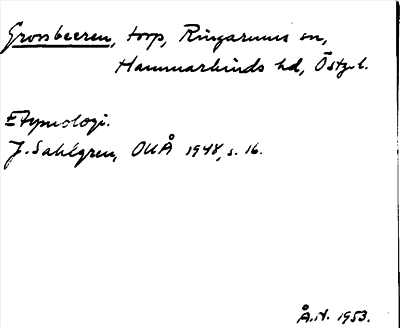 Grossbeeren, torp, Ringarums sn,
Hammarkinds hd, Östgöt.
Etymologi.
J. Sahlgren, OUÅ 1948, s. 16.
Å.N. 1953.